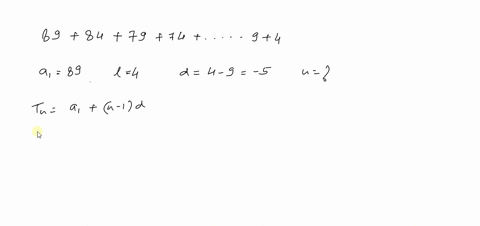 89 + 84 + 79 + 74 + ..... 9 + 4
a₁ = 89 l = 4 d = 4 - 9 = -5 n = ?
Tₙ = a₁ + (n-1) d